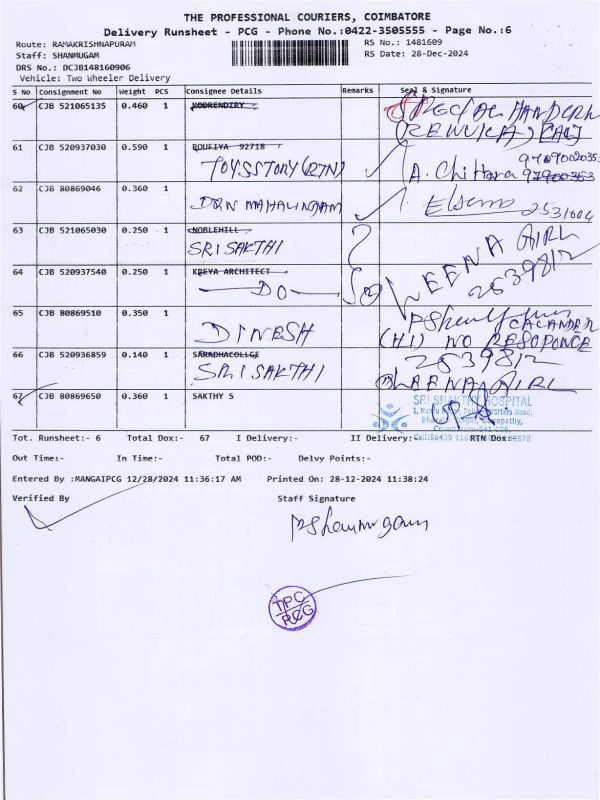 THE PROFESSIONAL COURIERS, COIMBATORE
Delivery Runsheet - PCG - Phone No.:0422-3505555 - Page No.:6
Route: RAMAKRISHNAPURAM RS No.: 1481609
Staff: SHANMUGAM RS Date: 28-Dec-2024
DRS No.: DCJB148160906
Vehicle: Two Wheeler Delivery
S No Consignment No Weight PCS Consignee Details Remarks Seal & Signature
60 CJB 521065135 0.460 1 MODRENDIRY
(RENUKA)
61 CJB 520937030 0.590 1 ROUFIYA 92718
TOYSSTORY (RTN) A. Chithara
62 CJB 80869046 0.360 1
DQN MAHALINGAM 2531004
63 CJB 521065030 0.250 1 NOBLEHILL
SRI SAKTHI LEENA AIRL
64 CJB 520937540 0.250 1 KREYA ARCHITECT
DO 2639812
65 CJB 80869510 0.350 1
DINESH CALANDER
(HI) NO RESOPONCE
66 CJB 520936859 0.140 1 SARADHACOLLGE
SRI SAKTHI 2639812
LEENA AIRL
67 CJB 80869650 0.360 1 SAKTHY S
SRI SHAKTHY HOSPITAL
Tot. Runsheet:- 6 Total Dox:- 67 I Delivery:- II Delivery: RTN Dox:
Out Time:- In Time:- Total POD:- Delvy Points:-
Entered By :MANGAIPCG 12/28/2024 11:36:17 AM Printed On: 28-12-2024 11:38:24
Verified By Staff Signature
PShanmugam
TPC
PCG